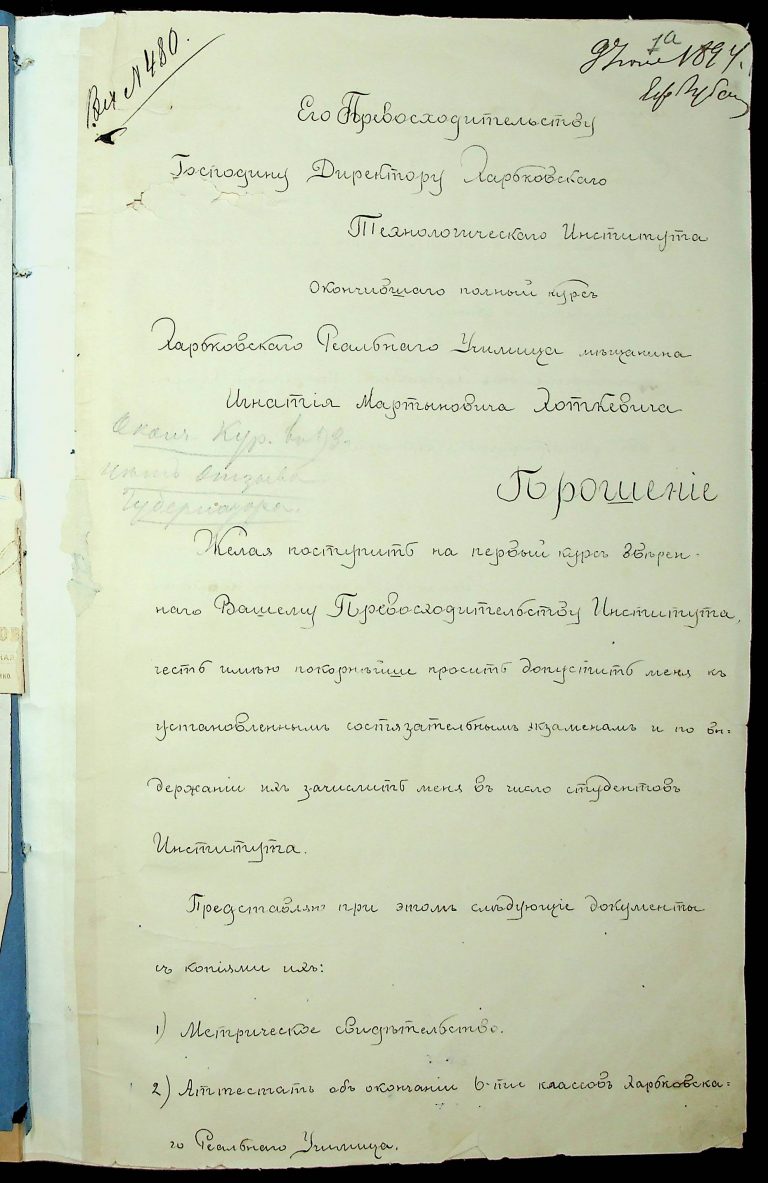 Вх № 480.
1а
9 Июня 1894.
Его Превосходительству
Господину Директору Харьковскаго
Технологическаго Института
окончившаго полный курсъ
Харьковскаго Реальнаго Училища мѣщанина
Игнатія Мартыновича Хоткевича
Оконч. Кур. въ 93.
нѣтъ отзыва
Губернатора.
Прошеніе
Желая поступить на первый курсъ ввѣрен-
наго Вашему Превосходительству Института,
честь имѣю покорнѣйше просить допустить меня къ
установленнымъ состязательнымъ экзаменамъ и по вы-
держаніи ихъ зачислить меня въ число студентовъ
Института.
Представляю при этомъ слѣдующіе документы
съ копіями ихъ:
1) Метрическое свидѣтельство.
2) Аттестатъ объ окончаніи 6-ти классовъ Харьковска-
го Реальнаго Училища.